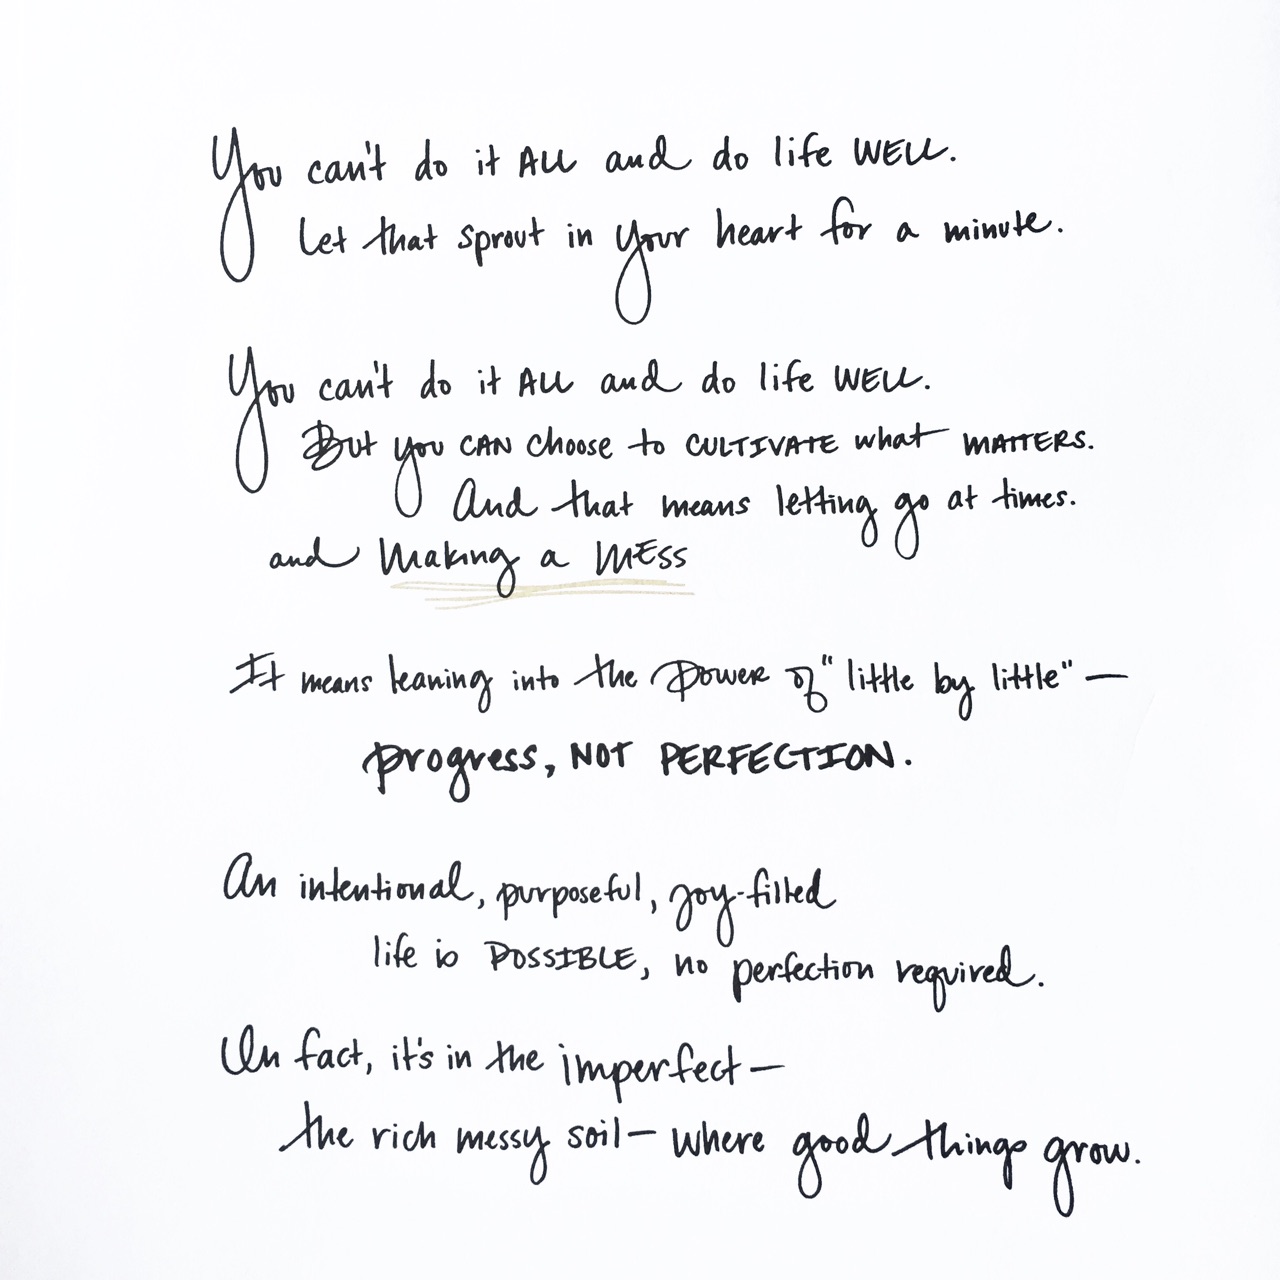 You can't do it ALL and do life WELL.
Let that sprout in your heart for a minute.
You can't do it ALL and do life WELL.
But you CAN choose to CULTIVATE what MATTERS.
And that means letting go at times.
and Making a MESS
It means leaning into the Power of "little by little" —
progress, NOT PERFECTION.
An intentional, purposeful, joy-filled
life is POSSIBLE, no perfection required.
In fact, it's in the imperfect —
the rich messy soil — where good things grow.